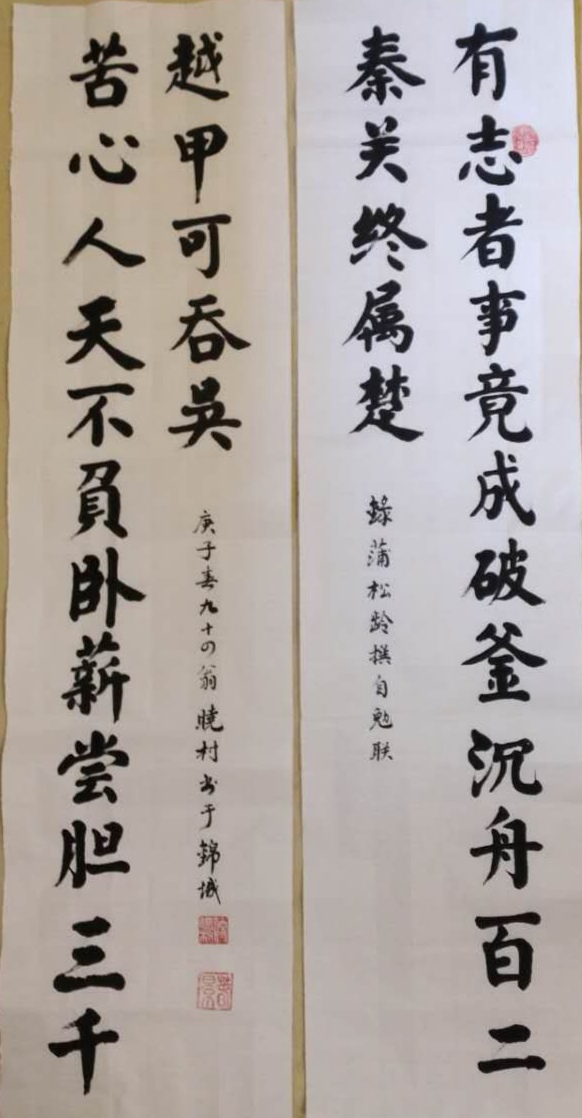 有志者事竟成破釜沉舟百二
秦关终属楚
錄蒲松龄撰自勉联
苦心人天不負卧薪尝胆三千
越甲可吞吳
庚子春九十四翁曉村书于錦城